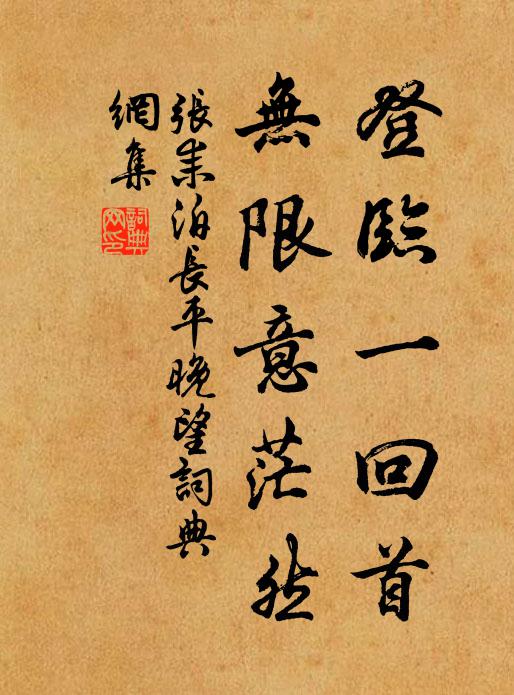 登臨一回首
無限意茫然
張耒泊長平晚望詞典
網集
詞典網印